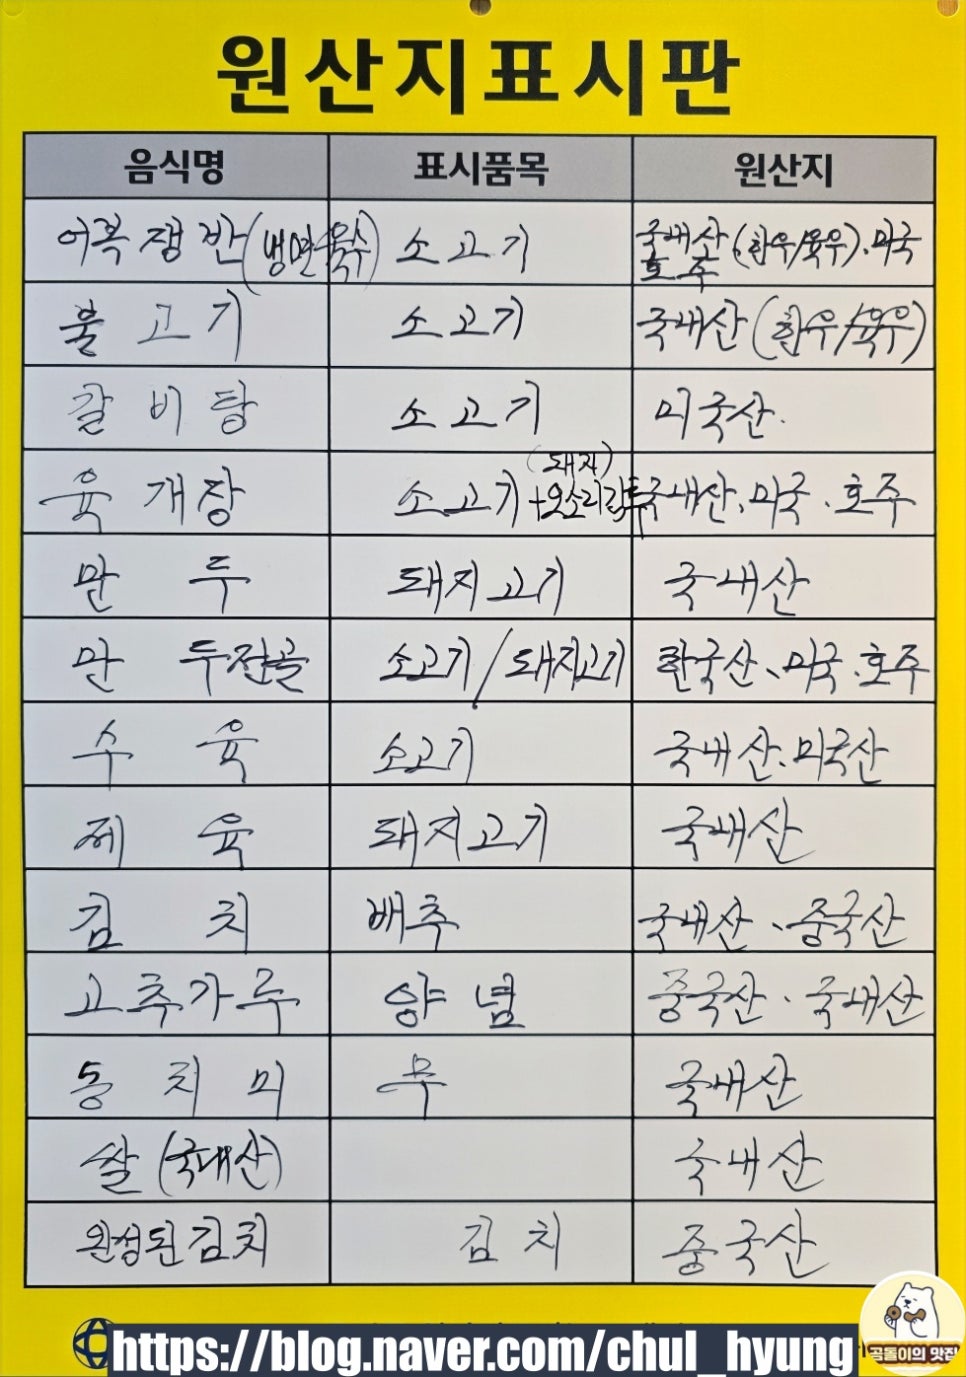 원산지표시판
음식명 표시품목 원산지
어복쟁반(냉면육수) 소고기 국내산(한우/육우).미국 호주
불고기 소고기 국내산(한우/육우)
갈비탕 소고기 미국산.
육개장 소고기+오소리감투(돼지) 국내산.미국.호주
만두 돼지고기 국내산
만두전골 소고기/돼지고기 한국산.미국.호주
수육 소고기 국내산.미국산
제육 돼지고기 국내산
김치 배추 국내산.중국산
고추가루 양념 중국산.국내산
동치미 무 국내산
쌀(국내산) 국내산
완성된김치 김치 중국산
https://blog.naver.com/chul_hyung
곰돌이의 맛집